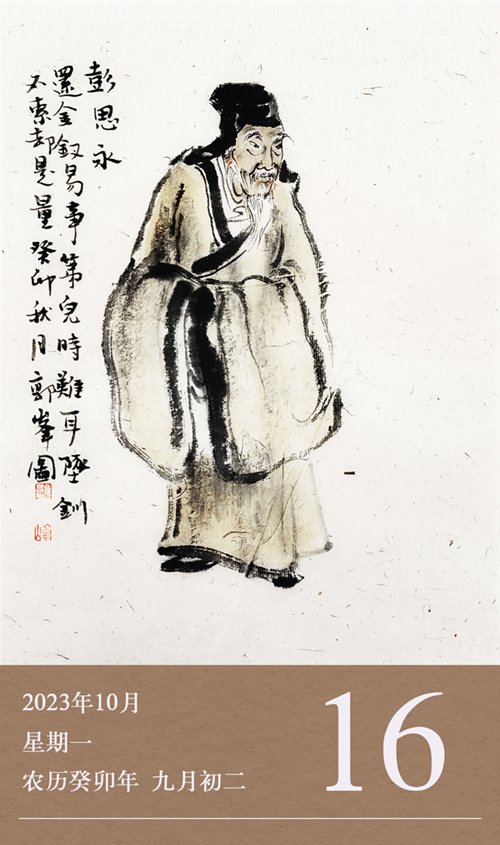 彭思永
還金釵易事第兒時難耳墜釧
不索却是量癸卯秋月郭峯圖
2023年10月
星期一
农历癸卯年 九月初二
16